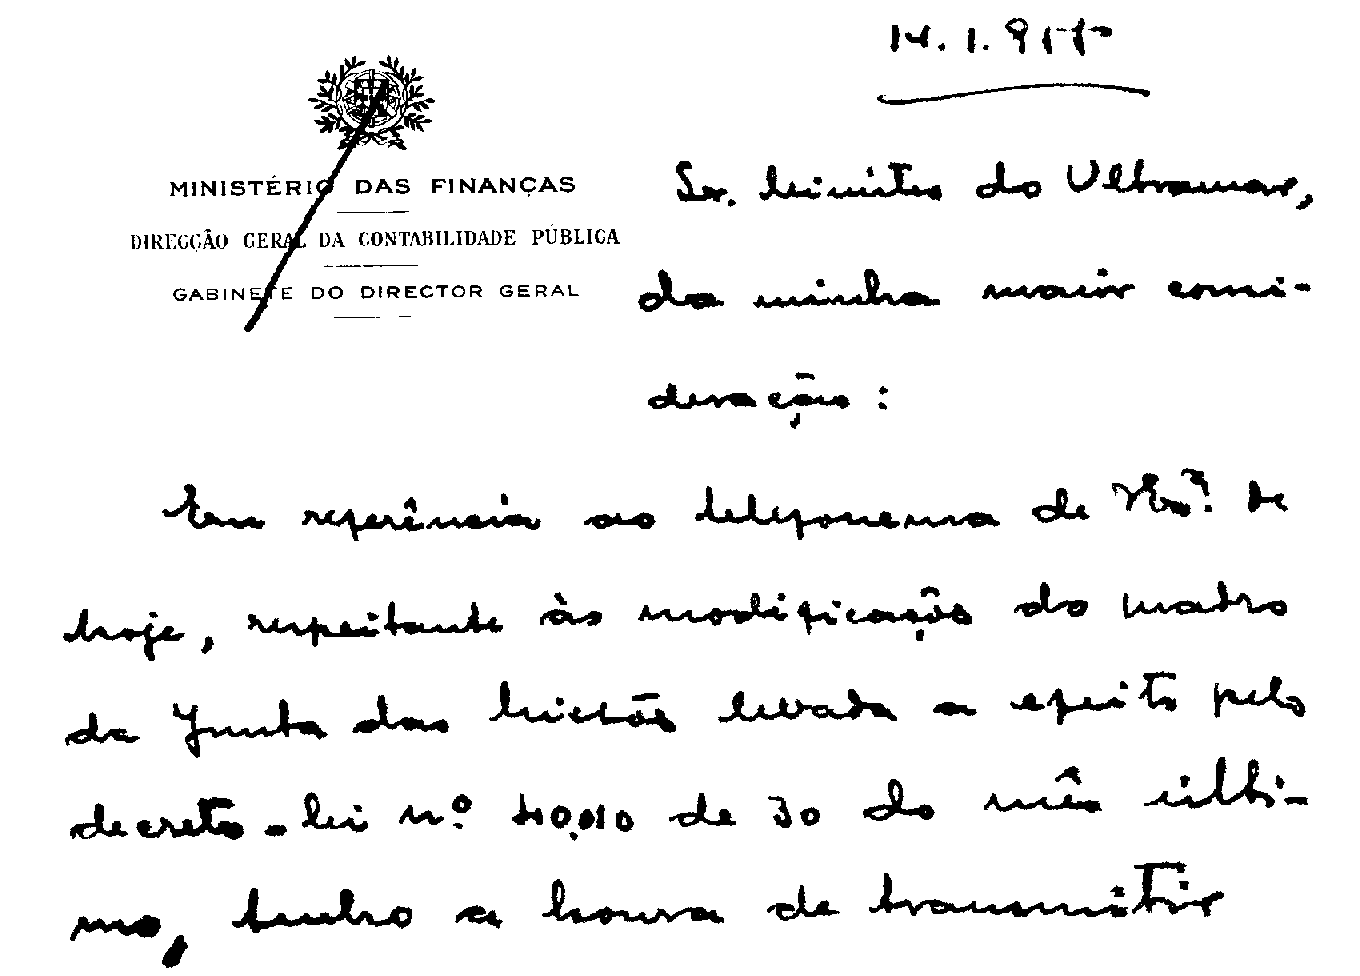 14.1.955
MINISTÉRIO DAS FINANÇAS
DIRECÇÃO GERAL DA CONTABILIDADE PÚBLICA
GABINETE DO DIRECTOR GERAL
Sr. Ministro do Ultramar,
da minha maior consi-
deração:
Em referência ao telefonema de V. Exª. de
hoje, respeitante às modificações do quadro
da Junta das Missões levada a efeito pelo
decreto-lei n.º 40.010 de 30 do mês últi-
mo, tenho a honra de transmitir